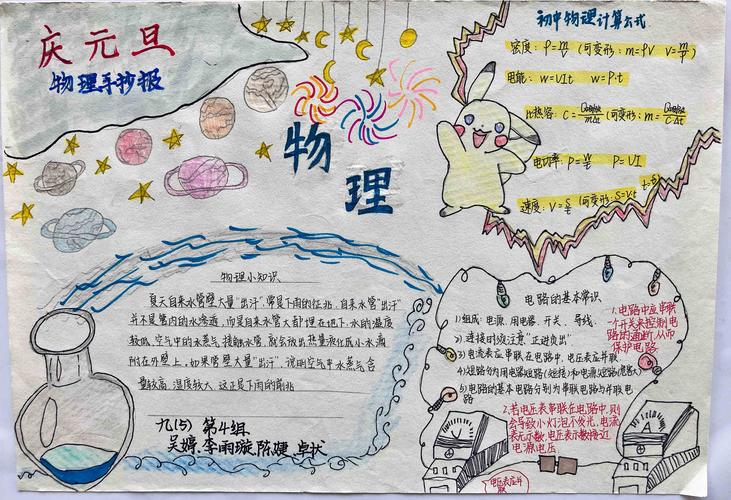 庆元旦
物理手抄报
物
理
初中物理计算公式
密度: ρ=m/V (可变形: m=ρV V=m/ρ)
电能: W=UIt W=P·t
比热容: C= (可变形: m=
电功率: P=W/t P=UI
速度: V=S/t (可变形: S=Vt
物理小知识
夏天自来水管壁大量"出汗",常是下雨的征兆,自来水管"出汗"
并不是管内的水渗透,而是自来水管大都埋在地下,水的温度
较低,空气中的水蒸气接触水管,就会放出热量液化成小水滴
附在外壁上,如果管壁大量"出汗",说明空气中水蒸气含
量较高,湿度较大,这正是下雨的前兆
九(5) 第4组
吴婷、李雨璇、陈婕、卓
电路的基本常识
1)组成:电源、用电器、开关、导线
2)连接时须注意"正进负出"
3)电流表应串联在电路中,电压表应并联
4)短路分为用电器短路(短接)和电源短路(危害大)
5)电路的基本电路分别为串联电路与并联电
路
1.电路中应串联
一个开关来控制电
路的通断,从而
保护电路.
2.若电压表串联在电路中,则
会导致小灯泡不发光,电流
表无示数,电压表示数接近
电源电压
V
A
电压表应并
联